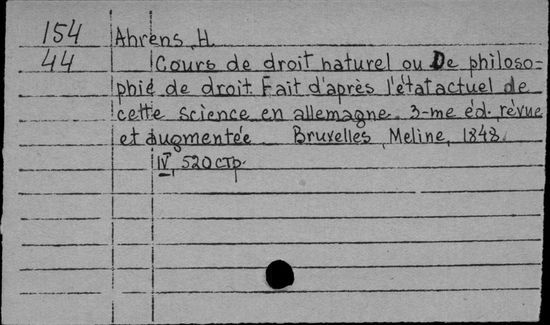 154
44
Ahrens, H.
Cours de droit naturel ou De philoso=
phie de droit. Fait d'après l'état actuel de
cette science en allemagne. 3-me éd. révue
et augmentée. Bruxelles, Meline, 1848.
IV, 520 стр.